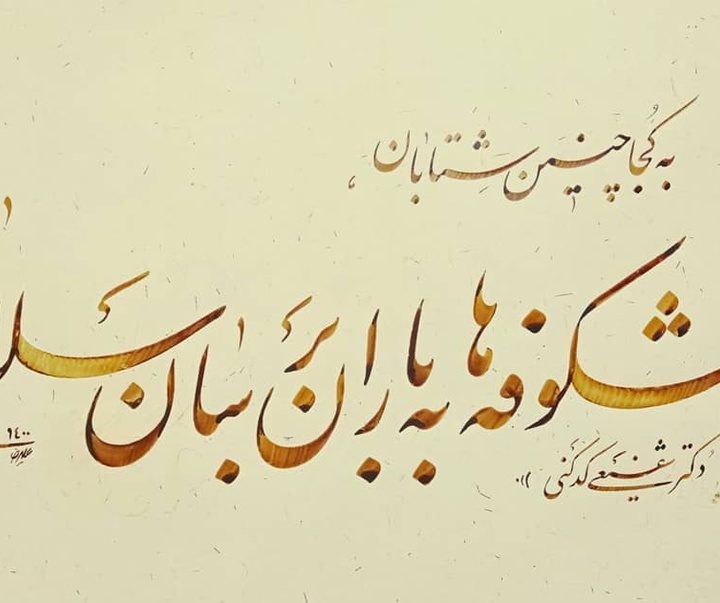 به کجا چنین شتابان
شکوفه ها به باران برسان سلا
دکتر شفیعی کدکنی
۱۴۰۰